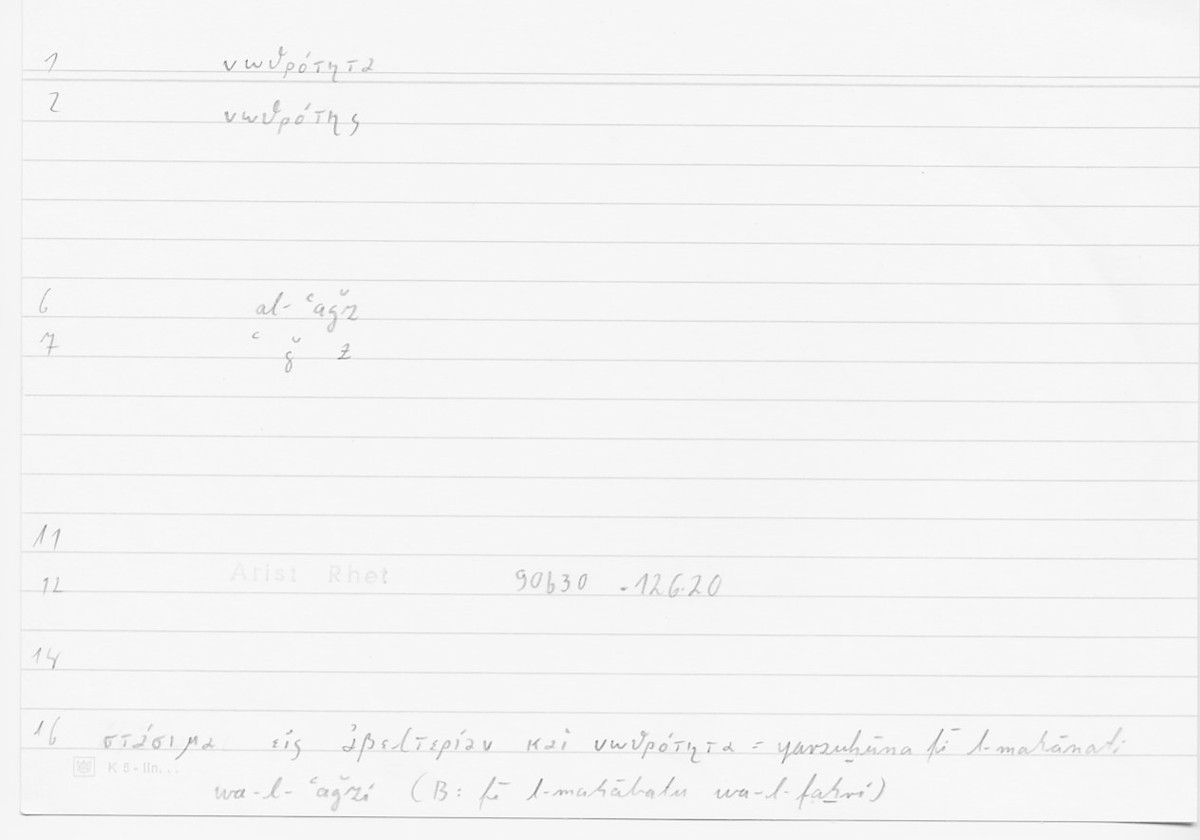 1 νωθρότητα
2 νωθρότης
6 al-ʿaǧz
7 ʿ ǧ z
11
12 Arist Rhet 90b30 -126.20
14
16 στάσιμα εἰς ἀβελτερίαν καὶ νωθρότητα =
wa-l-ʿaǧzi (B: fī wa-l-faḫri)